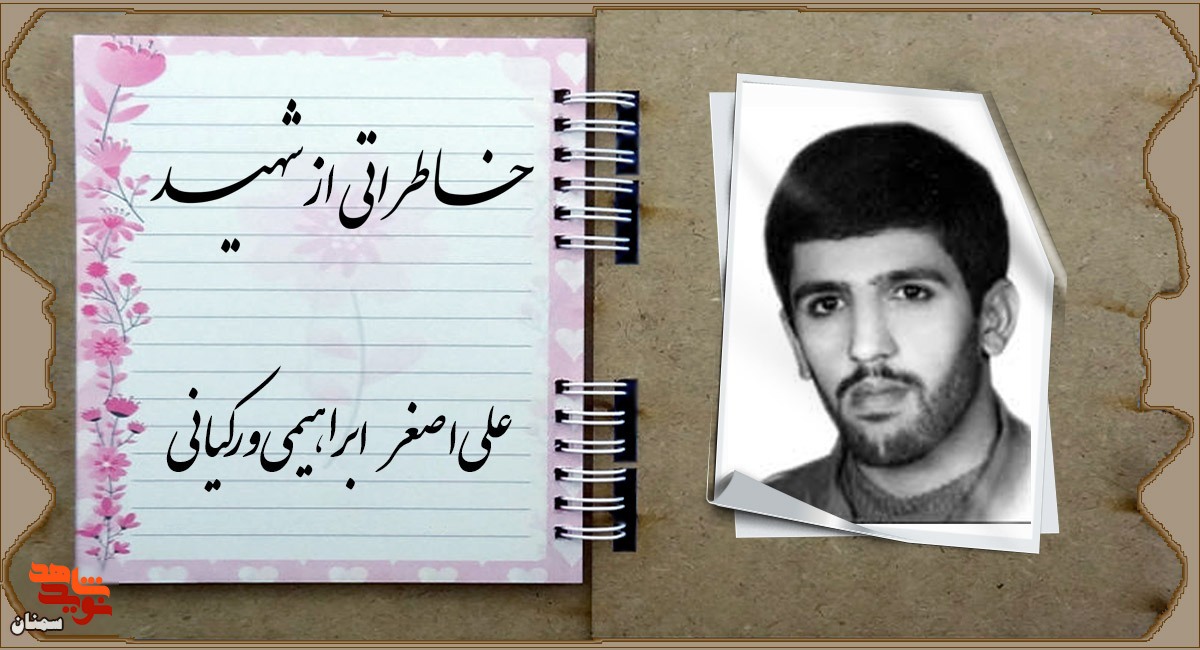 خاطراتی از شهید
علی اصغر ابراهیمی ورکیانی
نوید شاهد
سمنان